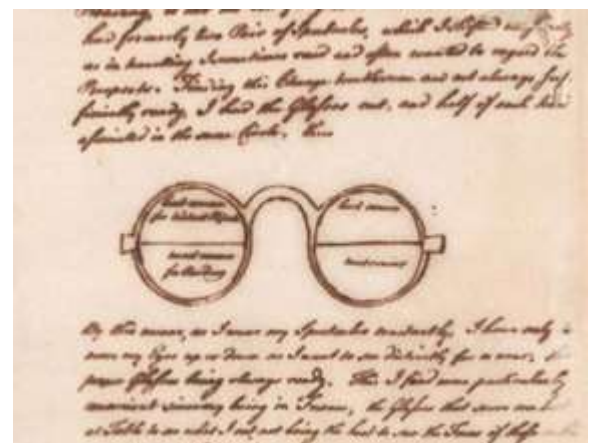 had formerly two Pair of Spectacles, which I shifted
as in travelling I sometimes read and often wanted to regard the
Prospects. Finding this Change troublesome and not always suf-
ficiently ready, I had the Glasses cut, and half of each kind
associated in the same Circle, thus
least convex
for distant Objects
least convex
most convex
for Reading
most convex
By this means, as I wear my Spectacles constantly, I have only
move my Eyes up or down as I want to see distinctly far or near, the
proper Glasses being always ready. This I find more particularly
convenient since my being in France, the Glasses that serve me
at Table to see what I eat, not being the best to see the Faces of